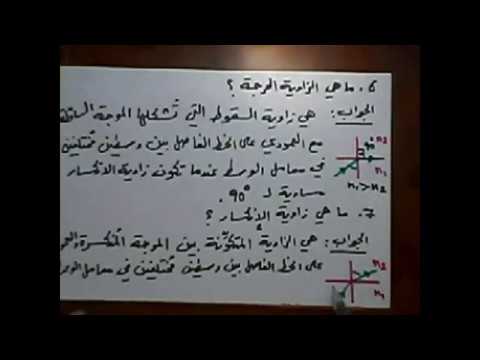 6. ما هي الزاوية الحرجة ؟
الجواب: هي زاوية السقوط التي تشكلها الموجة الساقطة
مع العمودي على الخط الفاصل بين وسطين مختلفين
في معامل الوسط عندما تكون زاوية الانكسار
مساوية لـ 90°.
n2
90°
n1
n1>n2
7. ما هي زاوية الانكسار ؟
الجواب: هي الزاوية المتكوّنة بين الموجة المنكسرة
على الخط الفاصل بين وسطين مختلفين في معامل الوسط
n2
n1